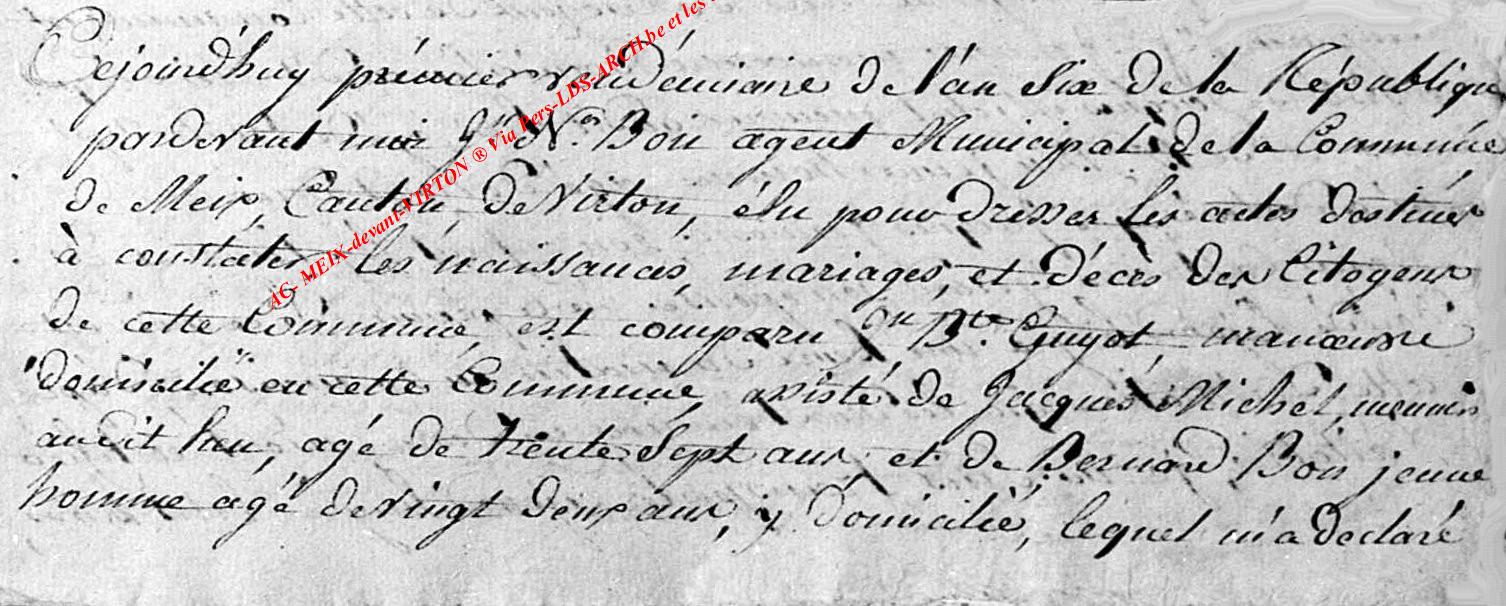 Cejourd'huy prémier vendémiaire de l'an six de la République
pardevant moi Jn Ns. Bon agent Municipal de la Commune
de Meix, Canton de Virton, élu pour dresser les actes destinés
à constater les naissances, mariages, et décès des Citoyens
de cette Commune, est comparu Bte. Guyot, manœuvre
domicilié en cette Commune, assisté de Jacques Michel, meunier
audit lieu, agé de trente sept ans et de Bernard Bon jeune
homme agé de vingt deux ans, y domicilié, lequel m'a declaré
AC- MEIX-devant-VIRTON ® Via Pers-LDS-ARCH.be et les